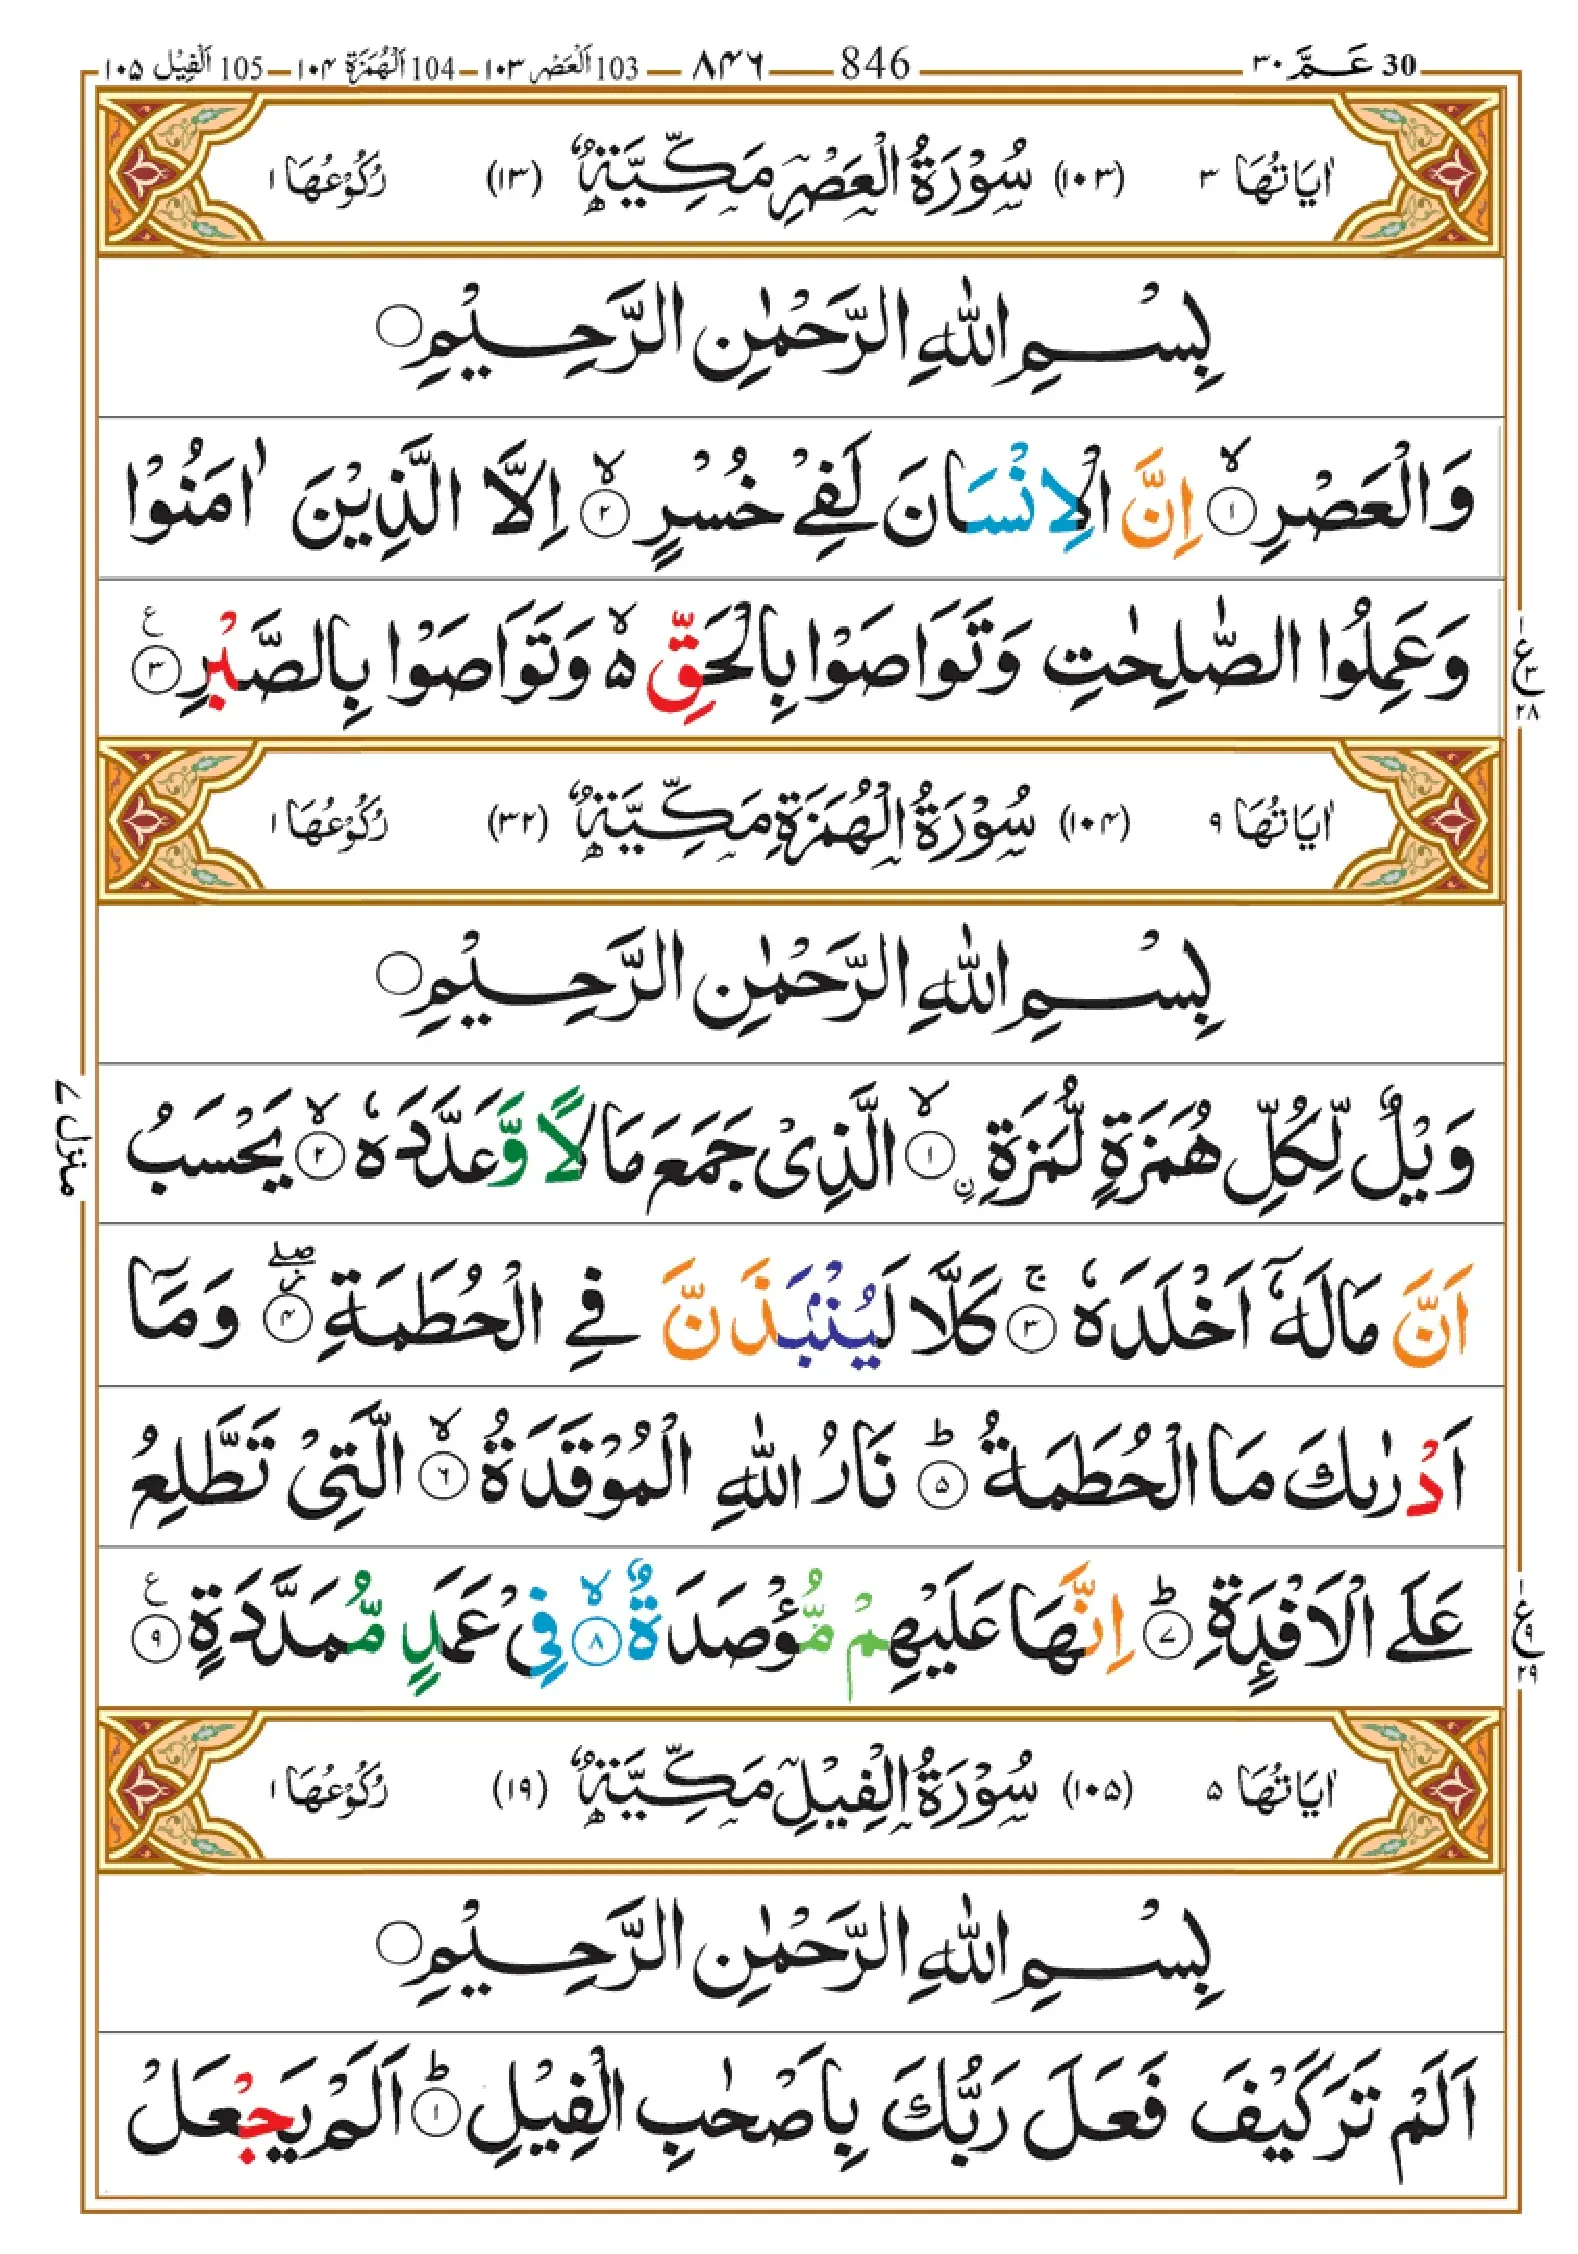 30 عَــمَّ ۳۰ 846 ۸۴۶ 103 اَلْعَصْر ۱۰۳ 104 اَلْهُمَزَة ۱۰۴ 105 اَلْفِيْل ۱۰۵
اٰيَاتُهَا ۳ (۱۰۳) سُوْرَةُ الْعَصْرِ مَكِّيَّةٌ (۱۳) رُكُوْعُهَا ۱
بِسْمِ اللّٰهِ الرَّحْمٰنِ الرَّحِيْمِ ○
وَالْعَصْرِ ۙ‏﴿۱﴾ اِنَّ الْاِنْسَانَ لَفِيْ خُسْرٍ ۙ‏﴿۲﴾ اِلَّا الَّذِيْنَ اٰمَنُوْا
وَعَمِلُوا الصّٰلِحٰتِ وَتَوَاصَوْا بِالْحَقِّ ۵ۙ وَتَوَاصَوْا بِالصَّبْرِ ﴿۳﴾ ع
ع ۳ ۲۸
اٰيَاتُهَا ۹ (۱۰۴) سُوْرَةُ الْهُمَزَةِ مَكِّيَّةٌ (۳۲) رُكُوْعُهَا ۱
بِسْمِ اللّٰهِ الرَّحْمٰنِ الرَّحِيْمِ ○
وَيْلٌ لِّكُلِّ هُمَزَةٍ لُّمَزَةِ ۙ‏﴿۱﴾ نِ۟ الَّذِيْ جَمَعَ مَالًا وَّعَدَّدَهٗ ۙ‏﴿۲﴾ يَحْسَبُ
منزل ۷
اَنَّ مَالَهٗۤ اَخْلَدَهٗ ۚ‏﴿۳﴾ كَلَّا لَيُنْۢبَذَنَّ فِي الْحُطَمَةِ ۖز‏﴿۴﴾ وَمَاۤ
اَدْرٰىكَ مَا الْحُطَمَةُ ؕ‏﴿۵﴾ نَارُ اللّٰهِ الْمُوْقَدَةُ ۙ‏﴿۶﴾ الَّتِيْ تَطَّلِعُ
عَلَى الْاَفْـِٕدَةِ ؕ‏﴿۷﴾ اِنَّهَا عَلَيْهِمْ مُّؤْصَدَةٌ ۙ‏﴿۸﴾ فِيْ عَمَدٍ مُّمَدَّدَةٍ ﴿۹﴾ ع
ع ۹ ۲۹
اٰيَاتُهَا ۵ (۱۰۵) سُوْرَةُ الْفِيْلِ مَكِّيَّةٌ (۱۹) رُكُوْعُهَا ۱
بِسْمِ اللّٰهِ الرَّحْمٰنِ الرَّحِيْمِ ○
اَلَمْ تَرَ كَيْفَ فَعَلَ رَبُّكَ بِاَصْحٰبِ الْفِيْلِ ؕ‏﴿۱﴾ اَلَمْ يَجْعَلْ